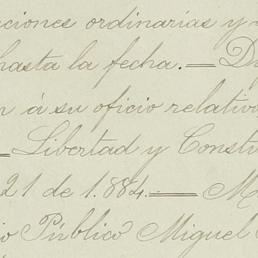 ciones ordinarias y
hasta la fecha.—D
n á su oficio relativo
—Libertad y Constit
21 de 1.884.—M
io Público Miguel